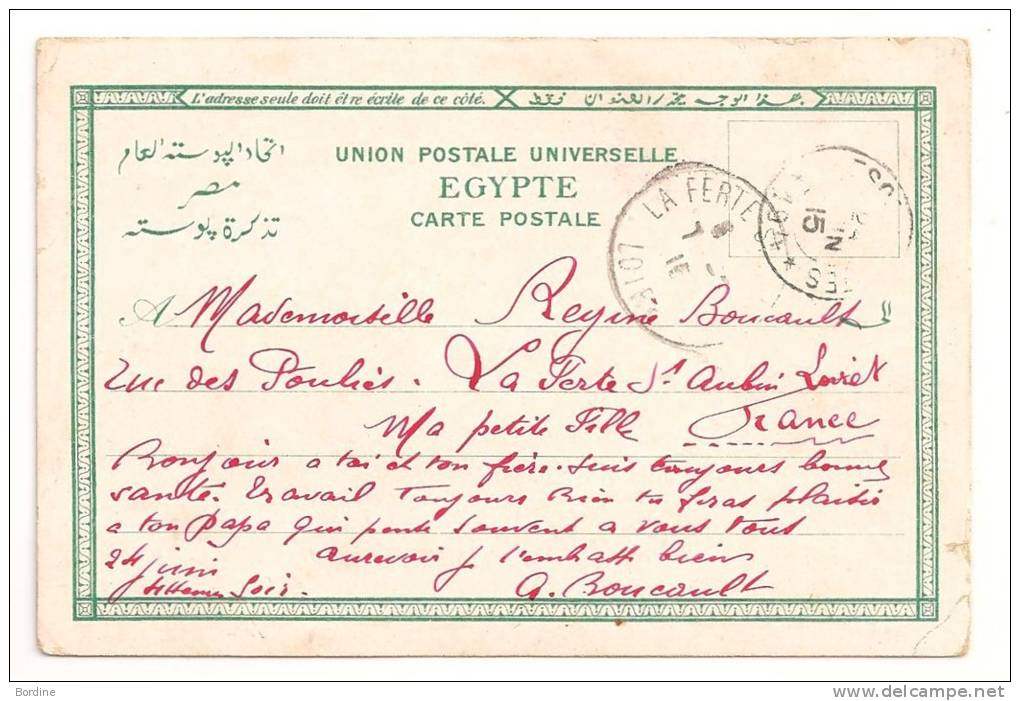 L'adresse seule doit être écrite de ce côté.
هذا الوجه مخصص للعنوان فقط
UNION POSTALE UNIVERSELLE
EGYPTE
CARTE POSTALE
اتحاد البوسته العام
مصر
تذكرة بوسته
LA FERTE ST
LOIRET
15
A Mademoiselle Reyine Boucault الى
Rue des Poulies. La Ferte St Aubin Loiret
France
Ma petite Fille
Bonjour a toi et ton frère. suis toujours bonne
santé. travail toujours bien tu feras plaisir
a ton Papa qui pense souvent a vous tous
aurevoir je t'embrasse bien
24 juin
4 heures Soir.
A. Boucault
Bordine
www.delcampe.net